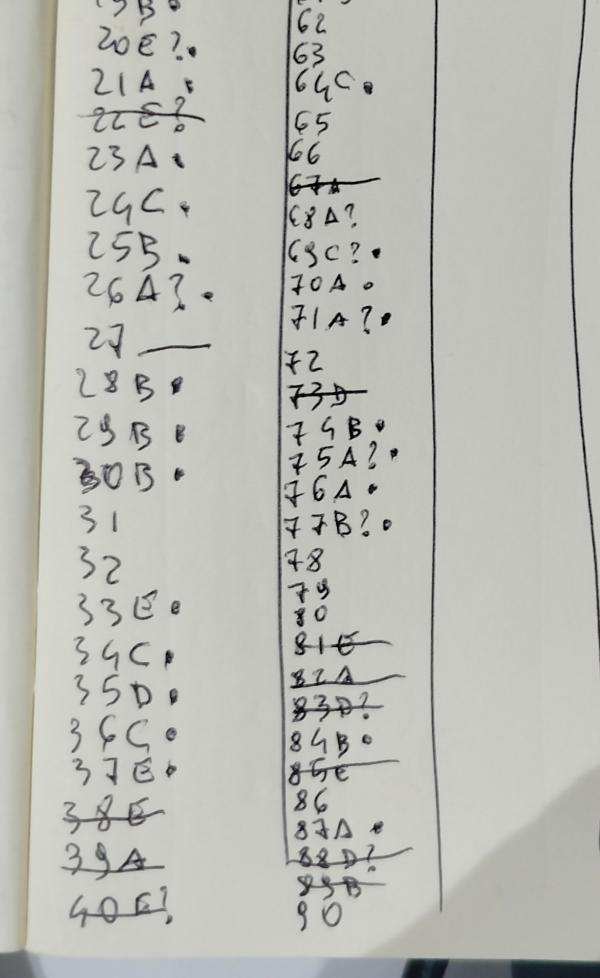 19B •
20E? •
21A •
22E?
23A •
24C •
25B •
26A? •
27 —
28B •
29B •
30B •
31
32
33E •
34C •
35D •
36C •
37E •
38E
39A
40E?
62
63
64C •
65
66
67A
68A?
69C? •
70A •
71A? •
72
73D
74B •
75A? •
76A •
77B? •
78
79
80
81E
82A
83D?
84B •
85E
86
87A •
88D?
89B
90